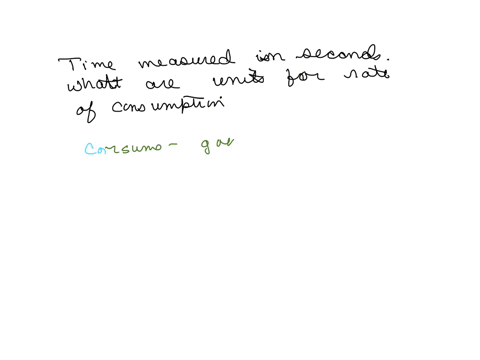 Time measured in seconds.
what are units for rate
of consumption
Consume - gas